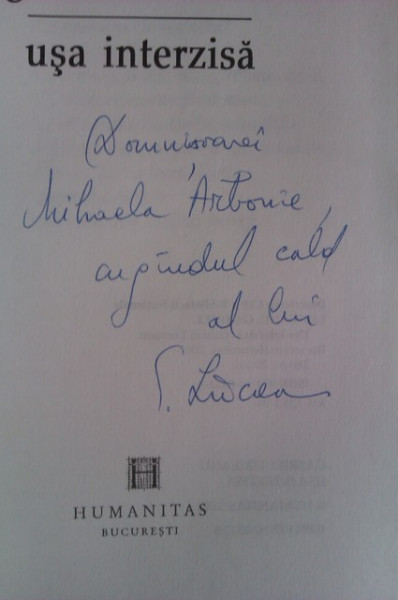 uşa interzisă
Domnişoarei
Mihaela Arbonie,
cu gîndul cald
al lui
G. Liiceanu
H
HUMANITAS
BUCUREŞTI